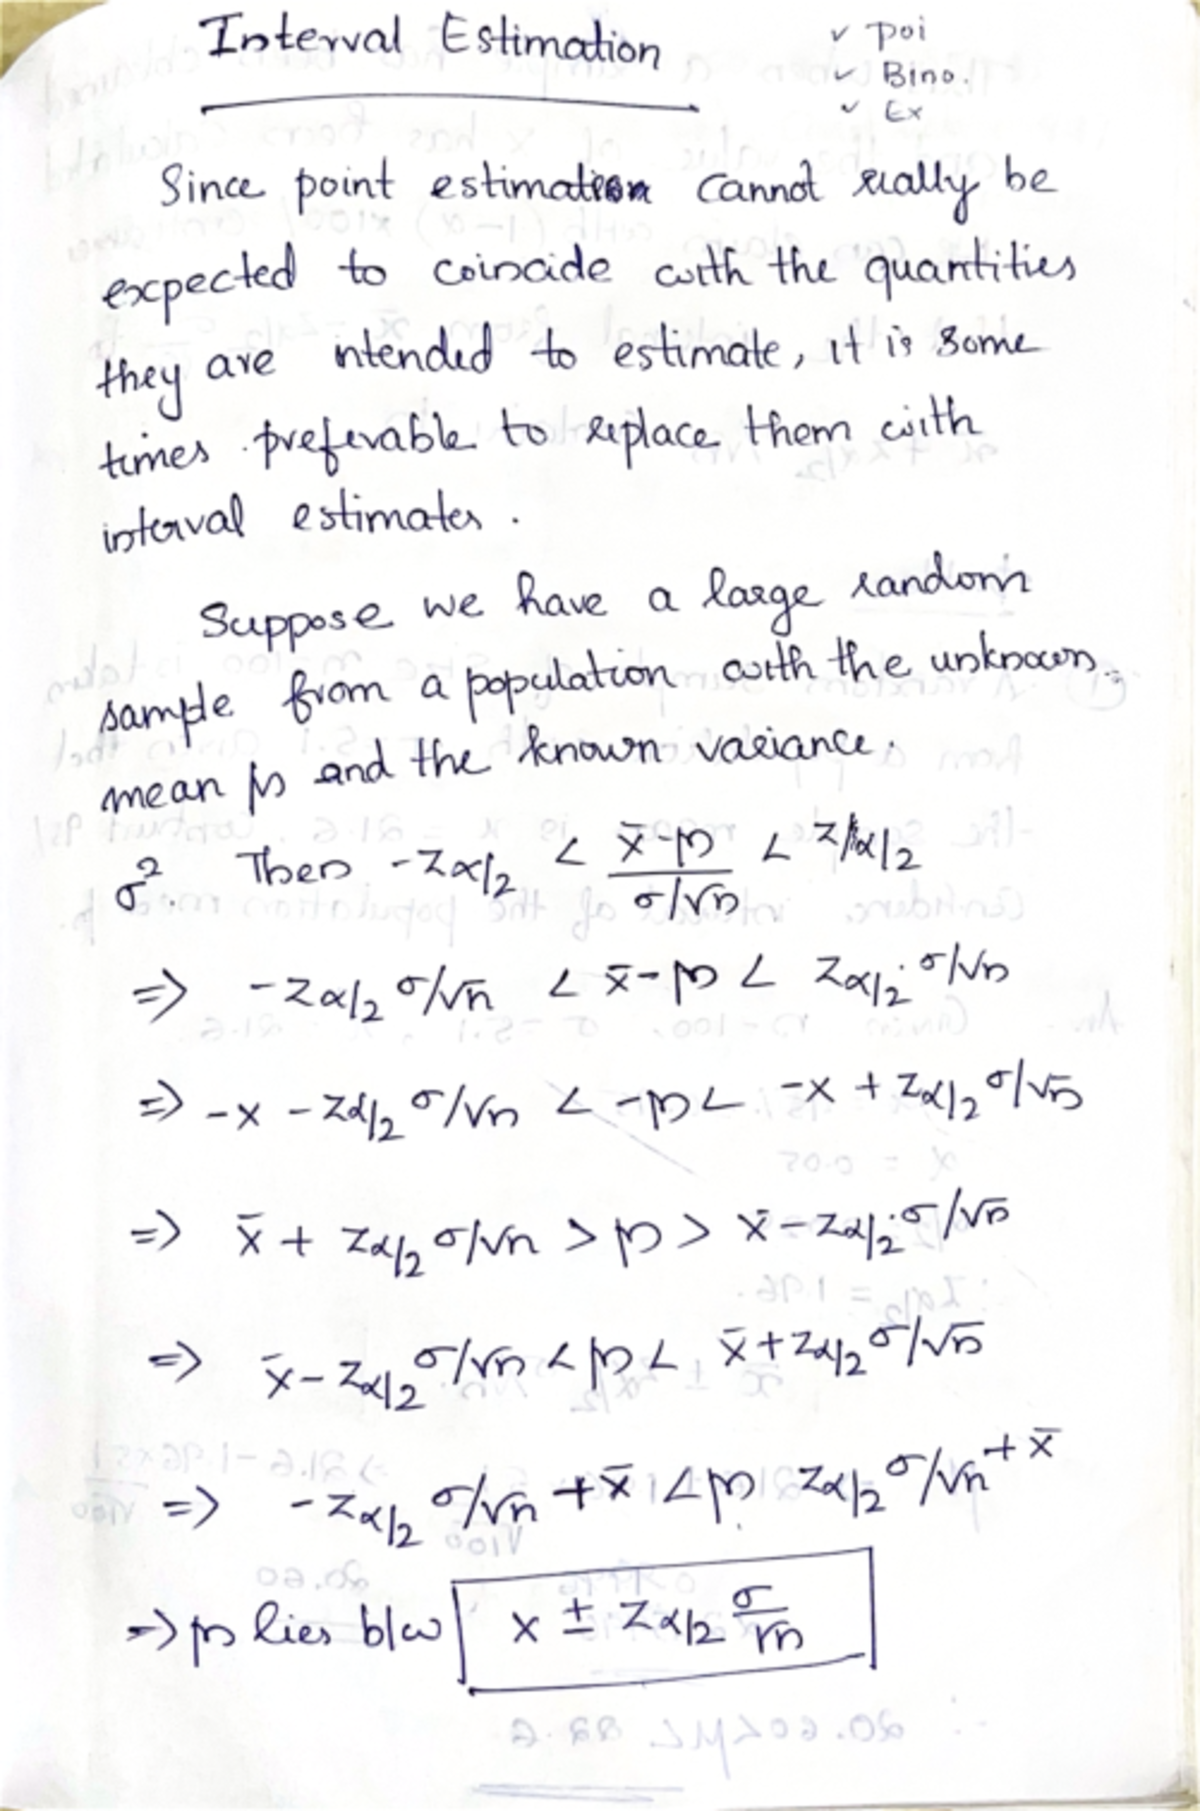 Interval Estimation
✓ Poi
✓ Bino.
✓ Ex
Since point estimation cannot really be
expected to coincide with the quantities
they are intended to estimate, it is some
times preferable to replace them with
interval estimates.
Suppose we have a large random
sample from a population with the unknown
mean μ and the known variance.
σ². Then -Zα/2 < (x̄-μ)/(σ/√n) < Zα/2
=> -Zα/2 σ/√n < x̄-μ < Zα/2·σ/√n
=> -x - Zα/2 σ/√n < -μ < -x + Zα/2 σ/√n
=> x̄ + Zα/2 σ/√n > μ > x̄ - Zα/2·σ/√n
=> x̄ - Zα/2 σ/√n < μ < x̄ + Zα/2 σ/√n
=> -Zα/2 σ/√n + x̄ < μ Zα/2 σ/√n + x̄
=> μ lies b/w x ± Zα/2 σ/√n